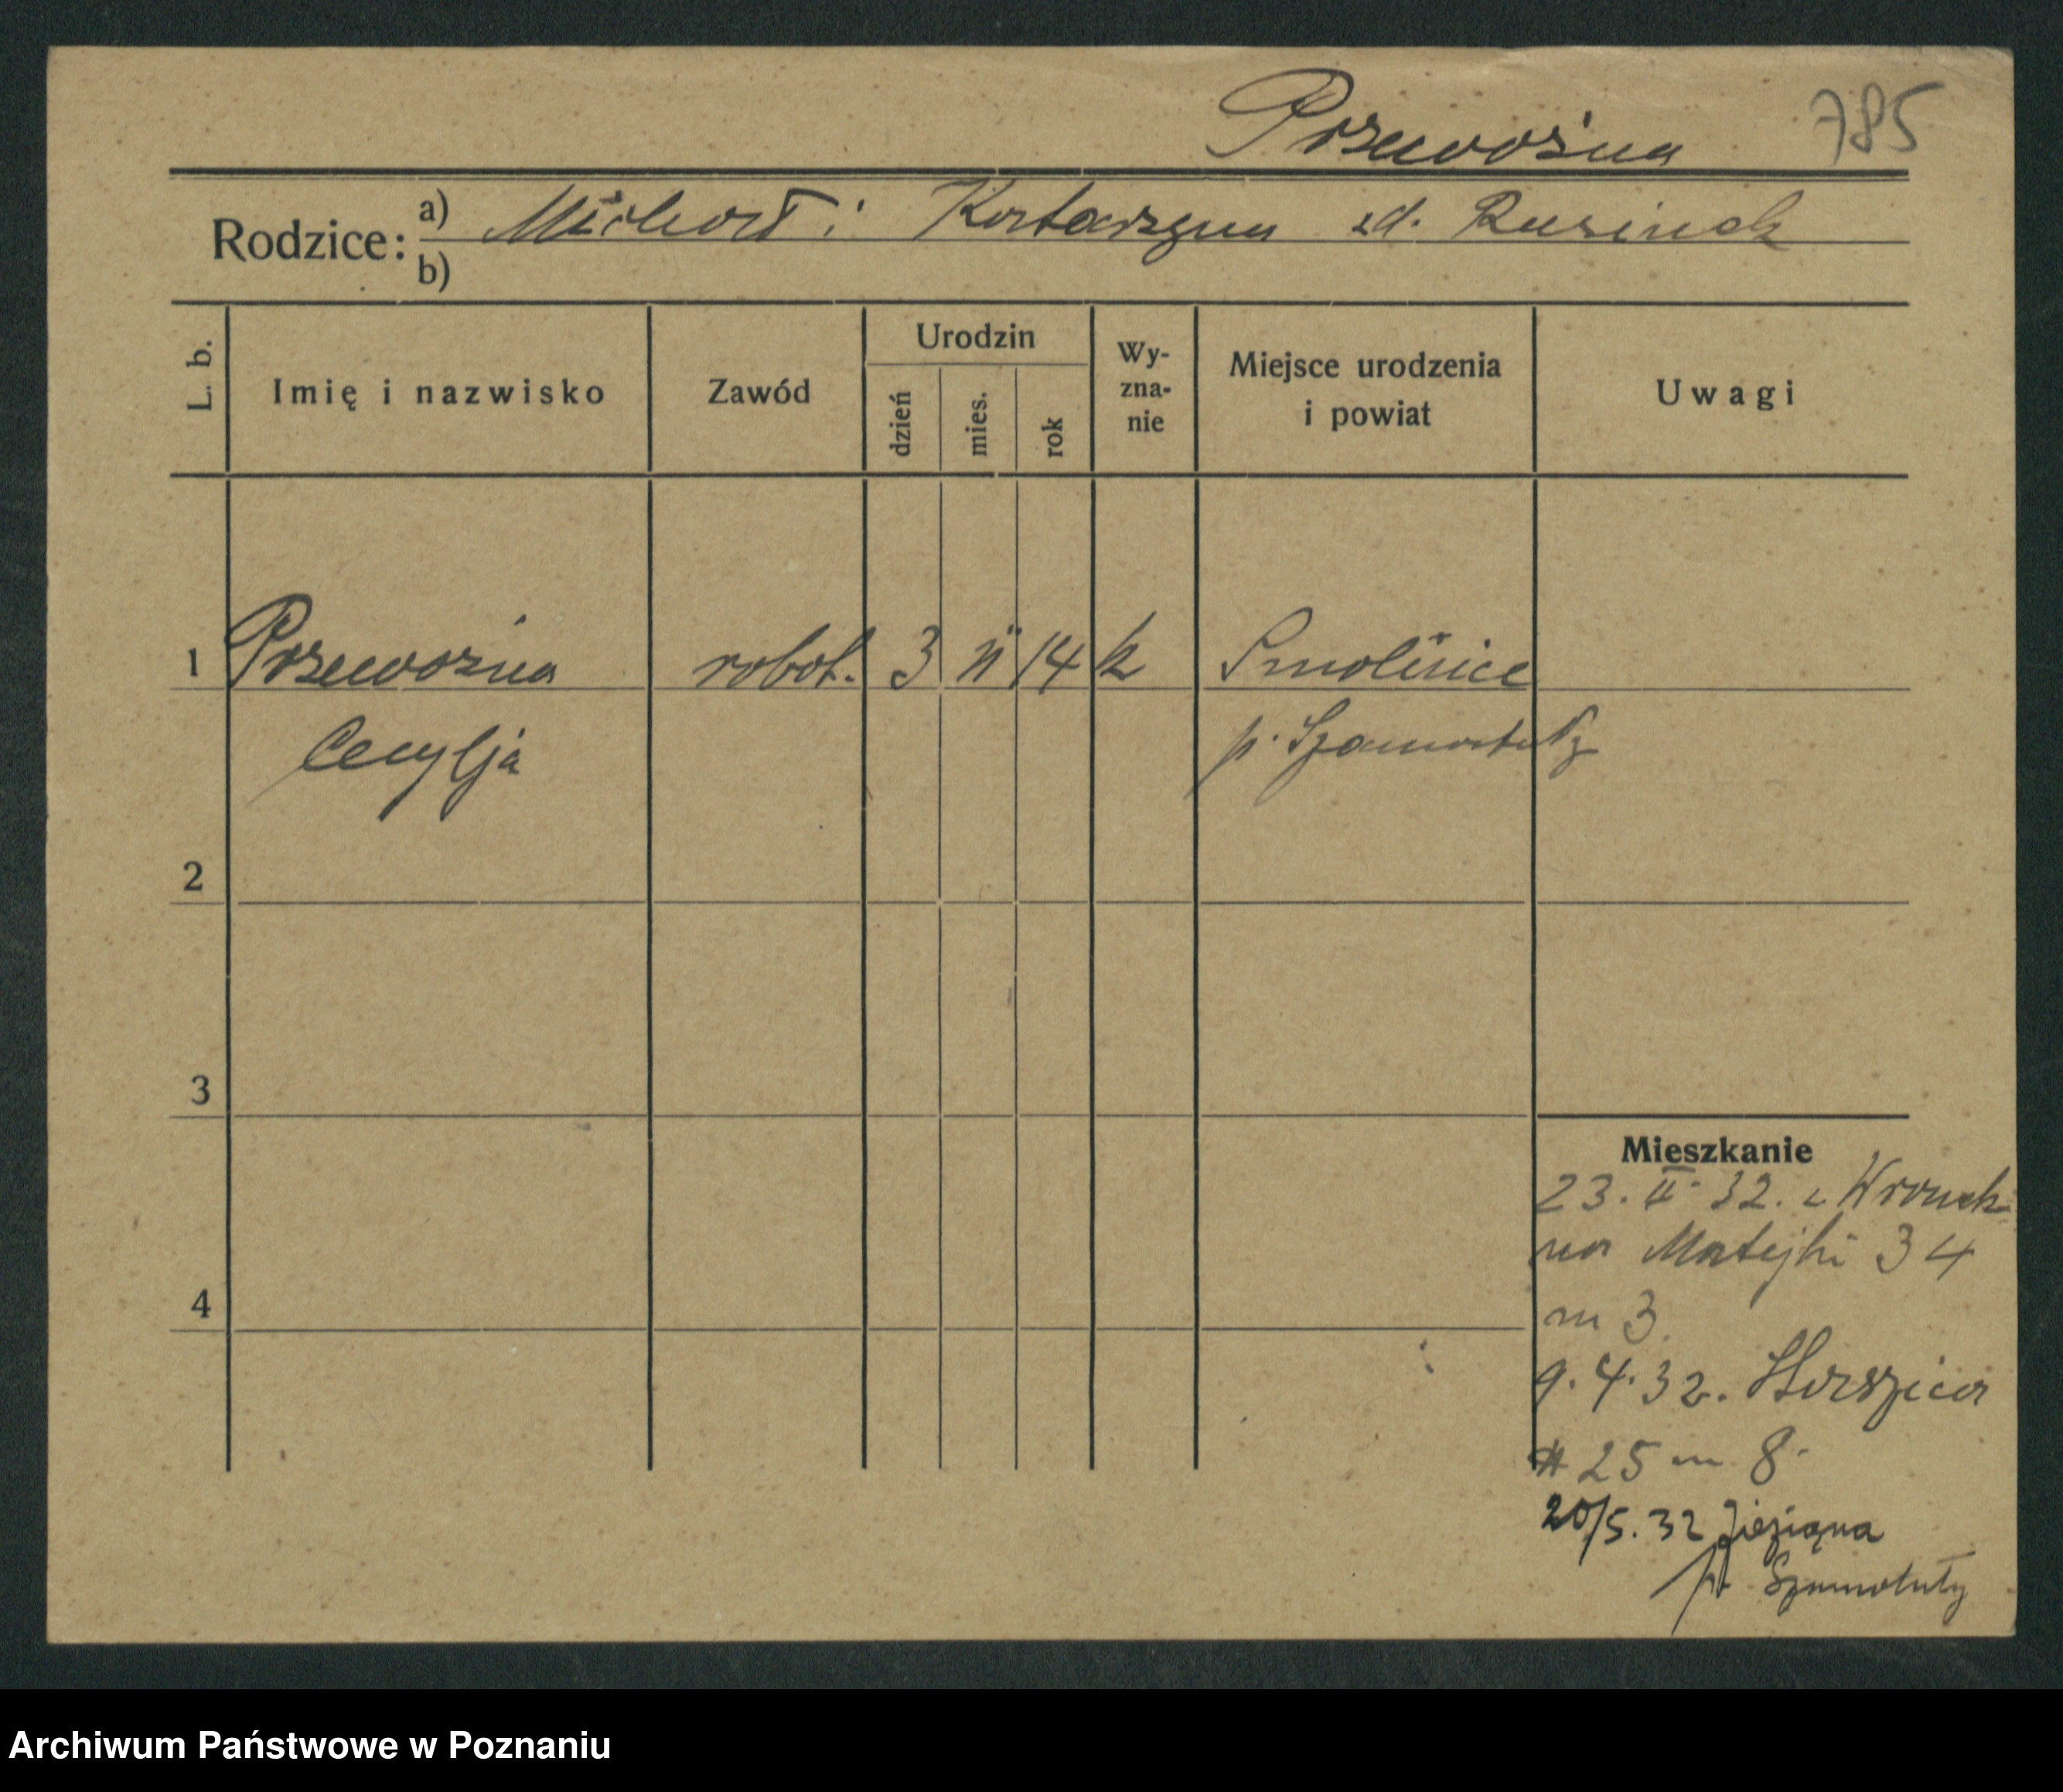 Przewoźna 785
Rodzice: a) Michał i Katarzyna zd. Rusinek
b)
L. b. Imię i nazwisko Zawód Urodzin dzień mies. rok Wy-zna-nie Miejsce urodzenia i powiat Uwagi
1 Przewoźna robot. 3 II 14 k Smolnice
Cecylja p. Szamotuły
2
3
4
Mieszkanie
23. II 32. z Wronek
na Matejki 34
m 3.
9.4.32.
25 m 8.
20/5.32
pt Szamotuły
Archiwum Państwowe w Poznaniu